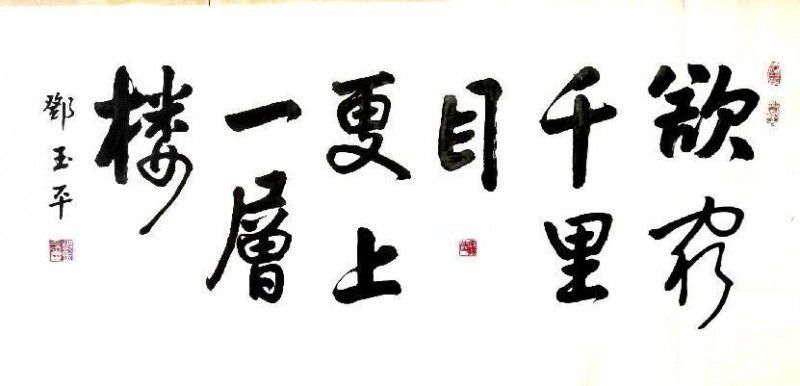 欲穷
千里
目
更上
一層
楼
鄧玉平